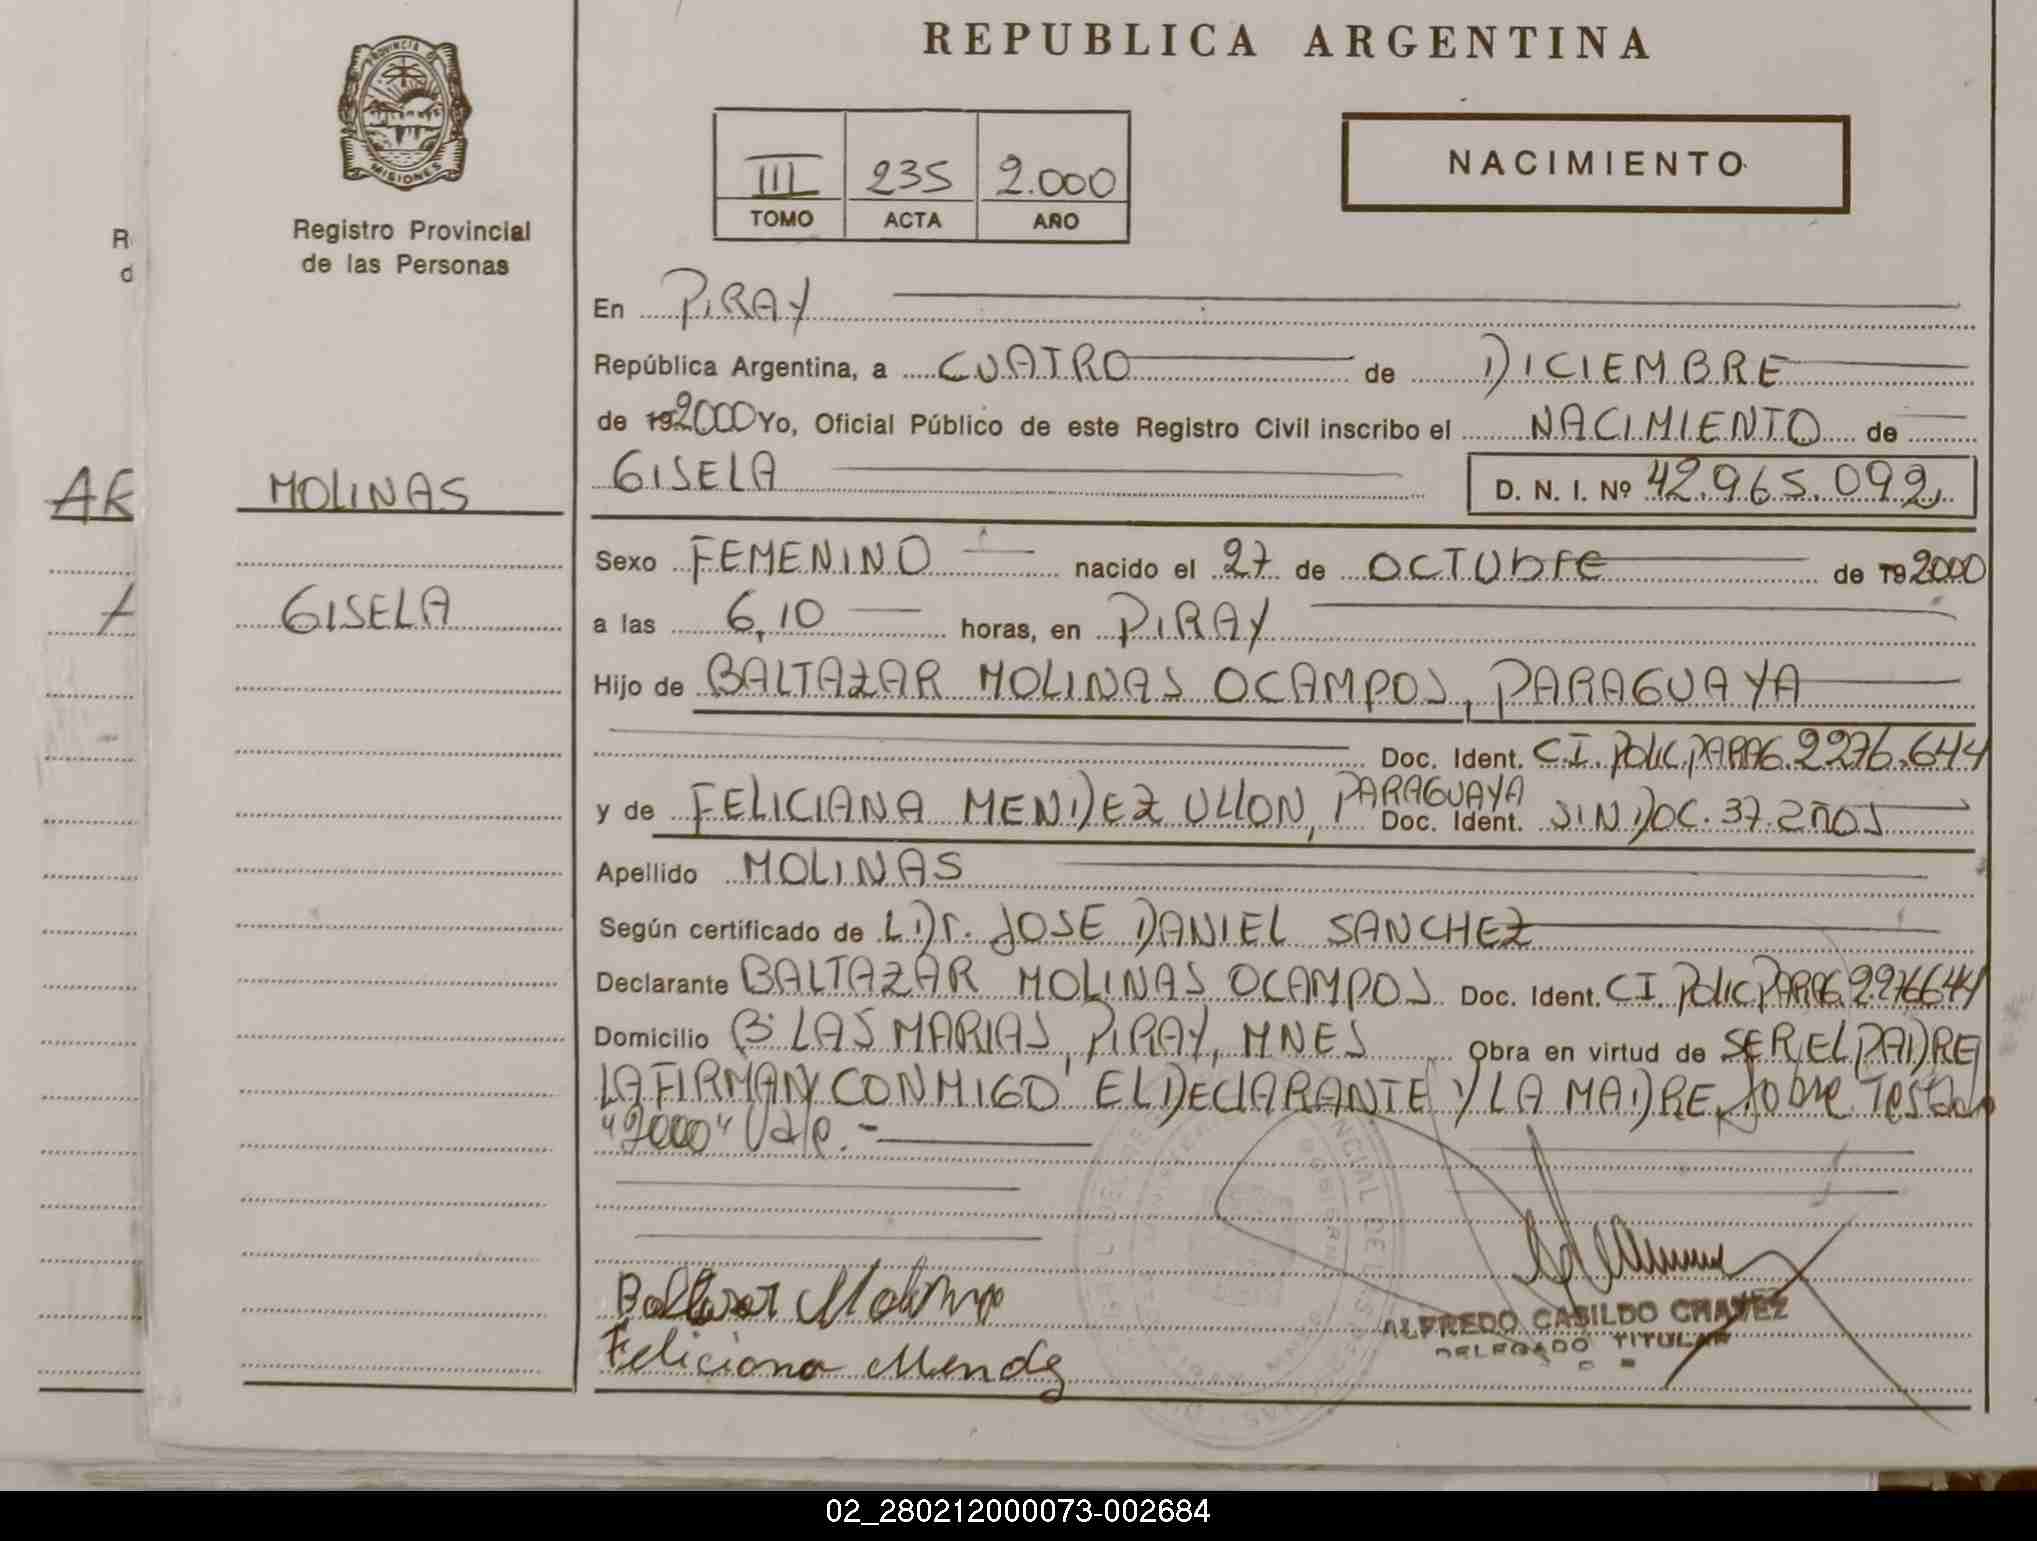 REPUBLICA ARGENTINA
PROVINCIA DE
MISIONES
Registro Provincial
de las Personas
NACIMIENTO
III 235 2.000
TOMO ACTA AÑO
En PIRAY
República Argentina, a CUATRO de DICIEMBRE
de 192000 Yo, Oficial Público de este Registro Civil inscribo el NACIMIENTO de
GISELA D. N. I. Nº 42.965.092
MOLINAS
GISELA
Sexo FEMENINO nacido el 27 de OCTUbre de 192000
a las 6,10 horas, en PIRAY
Hijo de BALTAZAR MOLINAS OCAMPOS, PARAGUAYA
Doc. Ident. C.I. POLIC.PARAG. 2276.644
y de FELICIANA MENDEZ ULLON, PARAGUAYA Doc. Ident. SIN DOC. 37. años
Apellido MOLINAS
Según certificado de L Dr. JOSE DANIEL SANCHEZ
Declarante BALTAZAR MOLINAS OCAMPOS Doc. Ident. CI POLIC PARAG 2276644
Domicilio Bº LAS MARIAS, PIRAY, MNES Obra en virtud de SER EL PADRE
LA FIRMAN CONMIGO EL DECLARANTE Y LA MADRE, Sobre Testado
"2000" Vale.-
Baltazar Molinas
Feliciana Mendez
ALFREDO CASILDO CHAVEZ
DELEGADO TITULAR
02_280212000073-002684